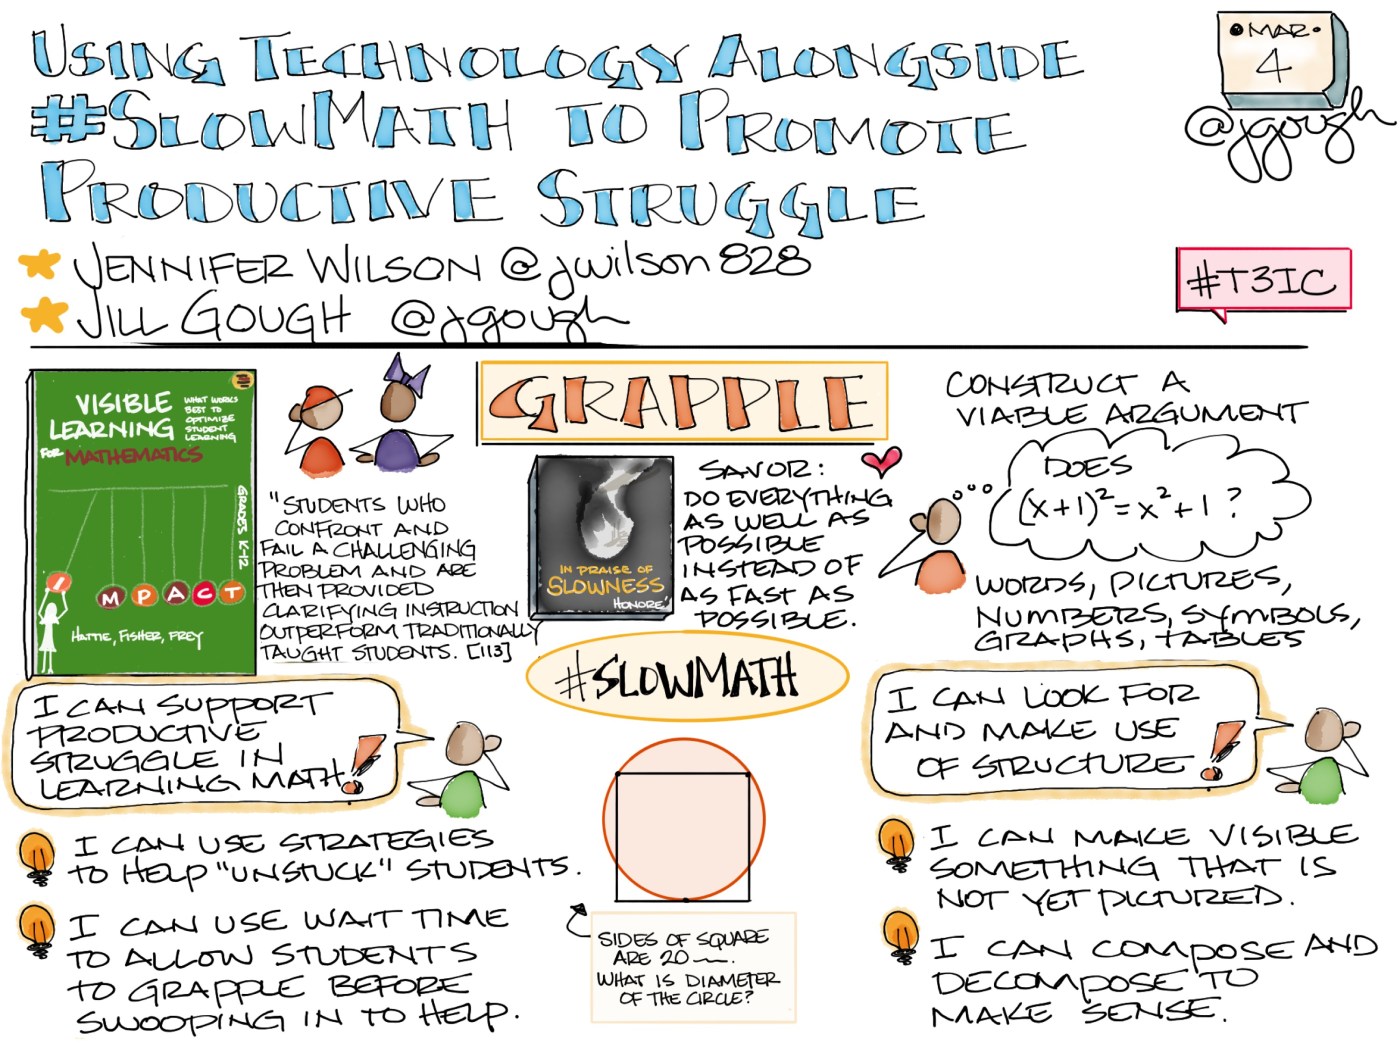 USING TECHNOLOGY ALONGSIDE
#SLOWMATH TO PROMOTE
PRODUCTIVE STRUGGLE
JENNIFER WILSON @jwilson828
JILL GOUGH @jgough
MAR
4
@jgough
#T3IC
VISIBLE
LEARNING
FOR MATHEMATICS
WHAT WORKS
BEST TO
OPTIMIZE
STUDENT
LEARNING
GRADES K-12
I
M P A C T
HATTIE, FISHER, FREY
"STUDENTS WHO
CONFRONT AND
FAIL A CHALLENGING
PROBLEM AND ARE
THEN PROVIDED
CLARIFYING INSTRUCTION
OUTPERFORM TRADITIONALLY
TAUGHT STUDENTS. [113]
GRAPPLE
IN PRAISE OF
SLOWNESS
HONORÉ
SAVOR:
DO EVERYTHING
AS WELL AS
POSSIBLE
INSTEAD OF
AS FAST AS
POSSIBLE.
#SLOWMATH
CONSTRUCT A
VIABLE ARGUMENT
DOES
(x+1)²=x²+1?
WORDS, PICTURES,
NUMBERS, SYMBOLS,
GRAPHS, TABLES
I CAN SUPPORT
PRODUCTIVE
STRUGGLE IN
LEARNING MATH!
I CAN USE STRATEGIES
TO HELP "UNSTUCK" STUDENTS.
I CAN USE WAIT TIME
TO ALLOW STUDENTS
TO GRAPPLE BEFORE
SWOOPING IN TO HELP.
SIDES OF SQUARE
ARE 20
WHAT IS DIAMETER
OF THE CIRCLE?
I CAN LOOK FOR
AND MAKE USE
OF STRUCTURE!
I CAN MAKE VISIBLE
SOMETHING THAT IS
NOT YET PICTURED.
I CAN COMPOSE AND
DECOMPOSE TO
MAKE SENSE.